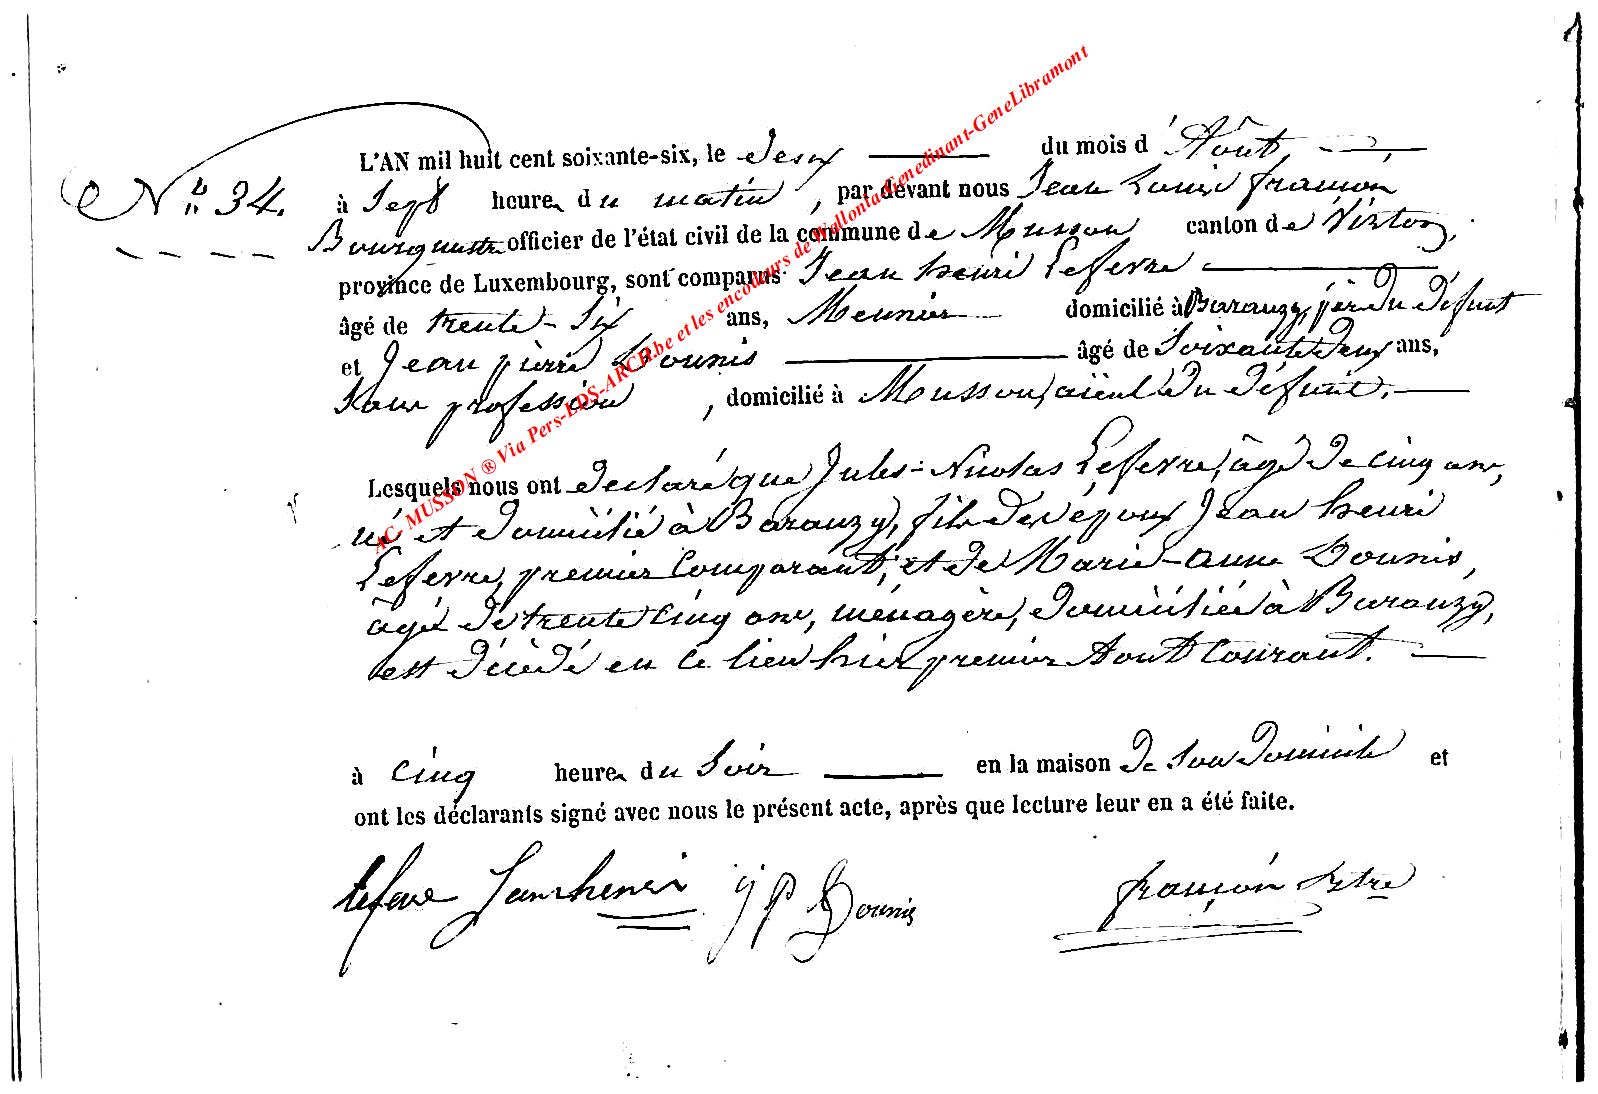 L'AN mil huit cent soixante-six, le deux du mois d'Août,
N° 34. à Sept heures du matin, par devant nous Jean Louis françon
Bourgmestre officier de l'état civil de la commune de Musson canton de Virton,
province de Luxembourg, sont comparus Jean henri Lefevre
âgé de trente-Six ans, Meunier domicilié à Baranzy, père du défunt
et Jean pierre Dounis âgé de Soixante deux ans,
Sans profession, domicilié à Musson, aïeul du défunt.
Lesquels nous ont déclaré que Jules-Nicolas Lefevre, âgé de cinq ans,
né et domicilié à Baranzy, fils des époux Jean henri
Lefevre, premier Comparant, et de Marie-anne Dounis,
âgée de trente cinq ans, ménagère, domiciliée à Baranzy,
est décédé en ce lieu hier premier Aout Courant.
à cinq heures du Soir en la maison de Son domicile et
ont les déclarants signé avec nous le présent acte, après que lecture leur en a été faite.
lefevre Jean henri J P Dounis françon
AC- MUSSON ® Via Pers-LDS-ARCH.be et les encodeurs de Wallonia-Genedinant-GeneLibramont